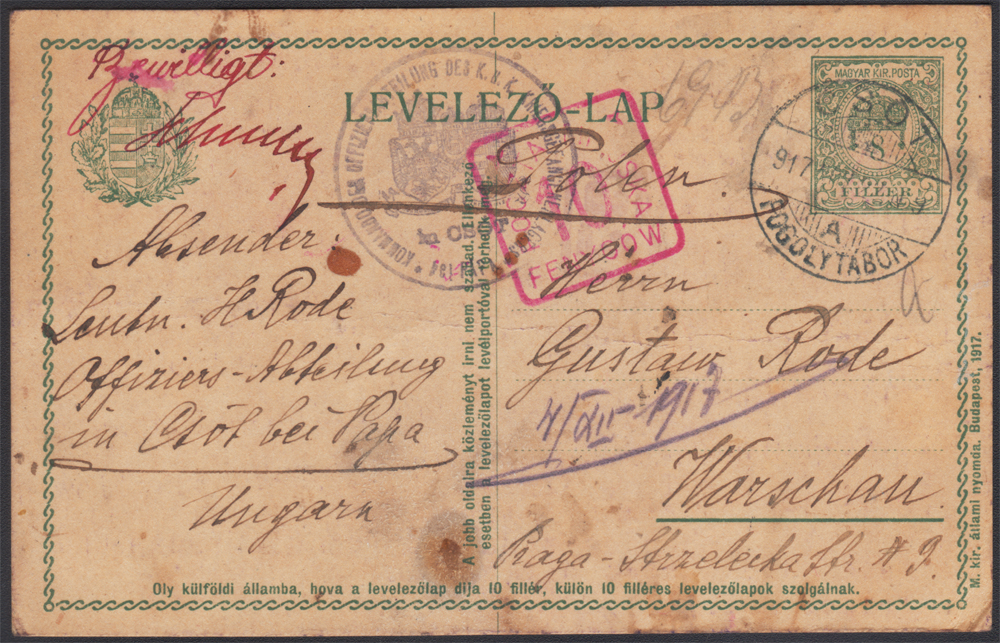 Bewilligt:
LEVELEZŐ-LAP
MAGYAR KIR. POSTA
FILLÉR
CSÓT
917
A
FOGOLYTÁBOR
KOMMANDO DER OFFIZIERSABTEILUNG DES K.u.K.
in CSÓT
POCZTA MIEJSKA
10
FENYGOW
Polen.
Absender:
Leutn. H Rode
Offiziers-Abteilung
in Csót bei Papa
Ungarn
Herrn
Gustaw Rode
4/XII-1917
Warschau
Praga-Strzelecka Str. # 9.
A jobb oldalra közleményt irni nem szabad. Ellenkező
esetben a levelezőlapot levélportóval terhelik meg.
Oly külföldi államba, hova a levelezőlap díja 10 fillér, külön 10 filléres levelezőlapok szolgálnak.
M. kir. állami nyomda. Budapest, 1917.